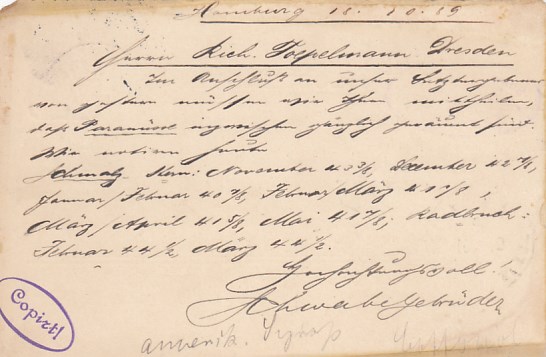 Hamburg 18. 10. 89
Herrn Rich. Pospelmann Dresden
Im Anschluß an unser
von gestern müssen wir Ihnen mittheilen,
daß Paranüsse inzwischen gänzlich geräumt sind.
Wir notiren heute
Schmalz Kern: November 43 3/8, December 42
Januar/Februar 40 7/8, Februar/März 41 1/8,
März/April 41 5/8, Mai 41 7/8; Radbruch:
Februar 44 1/2, März 44 1/2.
Hochachtungsvoll!
Schwabe Gebrüder
Copirt!
amerik. Syrop